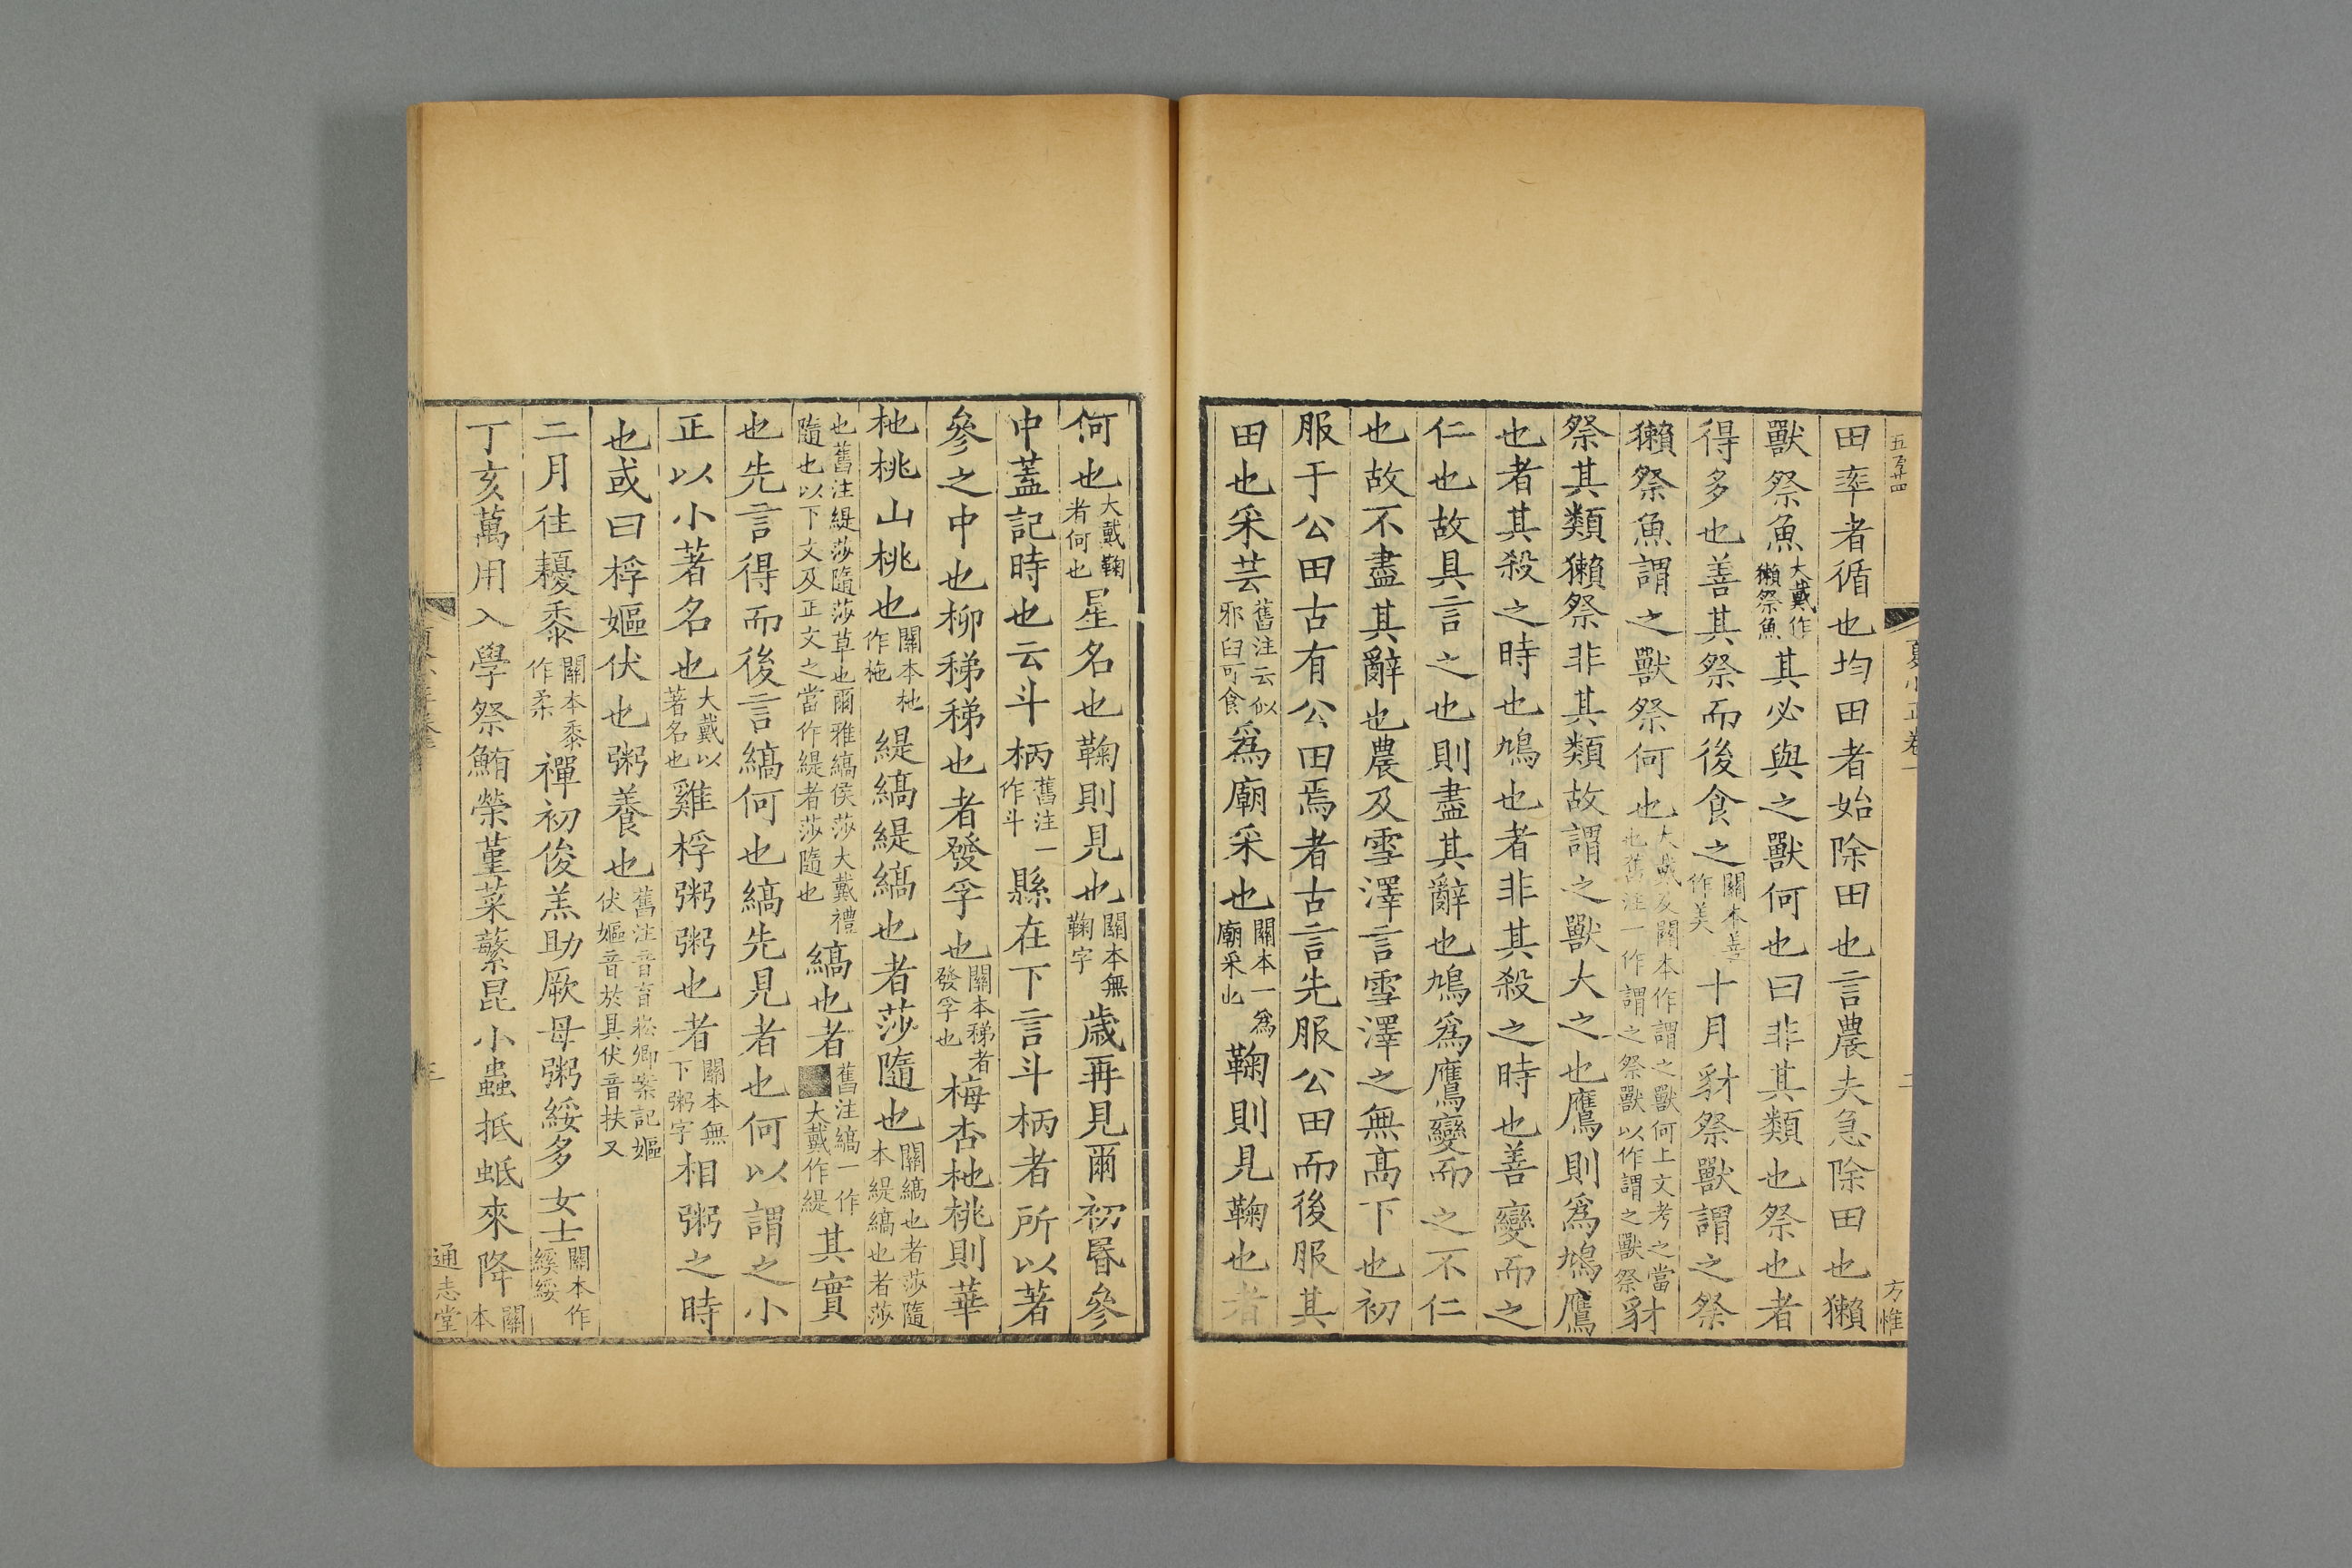 五百廿四
夏小正卷一
二
方惟
田率者循也均田者始除田也言農夫急除田也獺
獸祭魚大戴作獺祭魚其必與之獸何也曰非其類也祭也者
得多也善其祭而後食之關本善作美十月豺祭獸謂之祭
獺祭魚謂之獸祭何也大戴及關本作謂之獸何上文考之當也舊注一作謂之祭獸以作謂之獸祭豺
祭其類獺祭非其類故謂之獸大之也鷹則爲鳩鷹
也者其殺之時也鳩也者非其殺之時也善變而之
仁也故具言之也則盡其辭也鳩爲鷹變而之不仁
也故不盡其辭也農及雪澤言雪澤之無高下也初
服于公田古有公田焉者古言先服公田而後服其
田也采芸舊注云似邪臼可食爲廟采也關本一爲廟采也鞠則見鞠也者
何也大戴鞠者何也星名也鞠則見也關本無鞠字歲再見爾初昬參
中蓋記時也云斗柄舊注一作斗縣在下言斗柄者所以著
參之中也柳稊稊也者發孚也關本稊者發孚也梅杏杝桃則華
杝桃山桃也關本杝作柂緹縞緹縞也者莎隨也關縞也者莎隨本緹縞也者莎
也舊注緹莎隨莎草也爾雅縞侯莎大戴禮隨也以下文及正文之當作緹者莎隨也縞也者舊注縞一作大戴作緹其實
也先言得而後言縞何也縞先見者也何以謂之小
正以小著名也大戴以著名也雞桴粥粥也者關本無下粥字相粥之時
也或曰桴嫗伏也粥養也舊注音育崧卿案記嫗伏嫗音於具伏音扶又
二月往耰黍關本黍作柔禪初俊羔助厥母粥綏多女士關本作綏
丁亥萬用入學祭鮪榮菫菜蘩昆小蟲抵蚳來降關本
三
通志堂